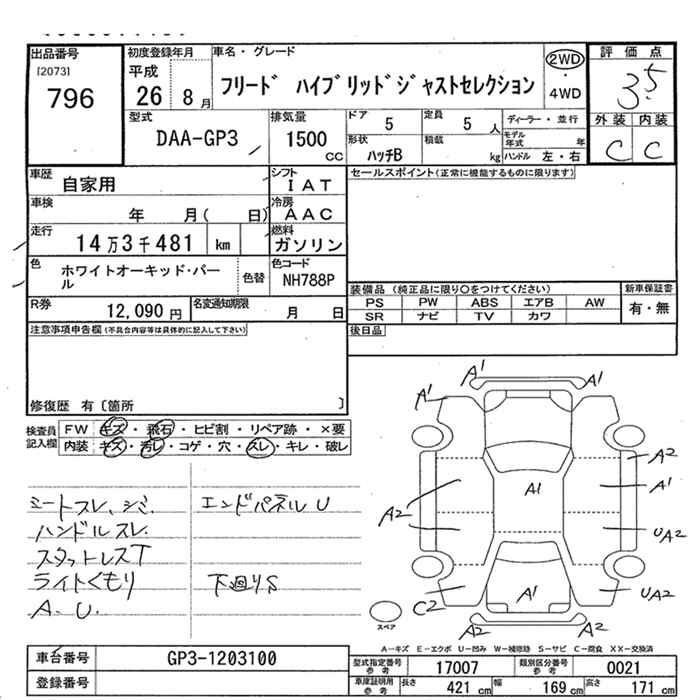 出品番号
[2073]
796
初度登録年月
平成
26 8 月
車名・グレード
フリード ハイブリッドジャストセレクション
2WD
・
4WD
評価点
3.5
外装 内装
C C
型式
DAA-GP3
排気量
1500 cc
ドア 5
定員 5 人
ディーラー・並行
モデル年式 年
形状 ハッチB
積載 kg
ハンドル 左・右
車歴 自家用
シフト IAT
車検 年 月( 日)
冷房 AAC
走行 14万3千481 km
燃料 ガソリン
色 ホワイトオーキッド・パール
色替
色コード NH788P
R券 12,090 円
名変通知期限 月 日
セールスポイント(正常に機能するものに限ります)
装備品 (純正品に限り○をつけてください)
PS PW ABS エアB AW
SR ナビ TV カワ
新車保証書
有・無
後日品
注意事項申告欄(不具合内容等は具体的に記入して下さい)
修復歴 有〔箇所 〕
検査員記入欄
FW キズ・飛石・ヒビ割・リペア跡・×要
内装 キズ・汚レ・コゲ・穴・スレ・キレ・破レ
シートスレ、シミ エンドパネル U
ハンドルスレ
スタットレスT
ライトくもり 下廻りS
A. U.
A1
A1
A1
A2
A1
A1
A2
UA2
A1
UA2
C2
A2
A2
スペア
A-キズ E-エクボ U-凹み W-補修跡 S-サビ C-腐食 XX-交換済
車台番号 GP3-1203100
登録番号
型式指定番号 参考 17007
類別区分番号 参考 0021
車庫証明用 参考 長さ 421 cm 幅 169 cm 高さ 171 cm